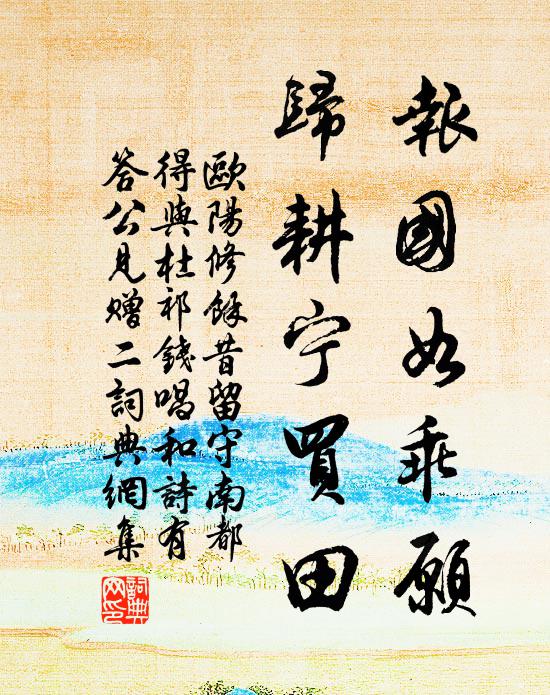 報國如乖願
歸耕寧買田
歐陽修餘昔留守南都
得與杜祁錢唱和詩有
答公見贈二詞典網集
詞典網印